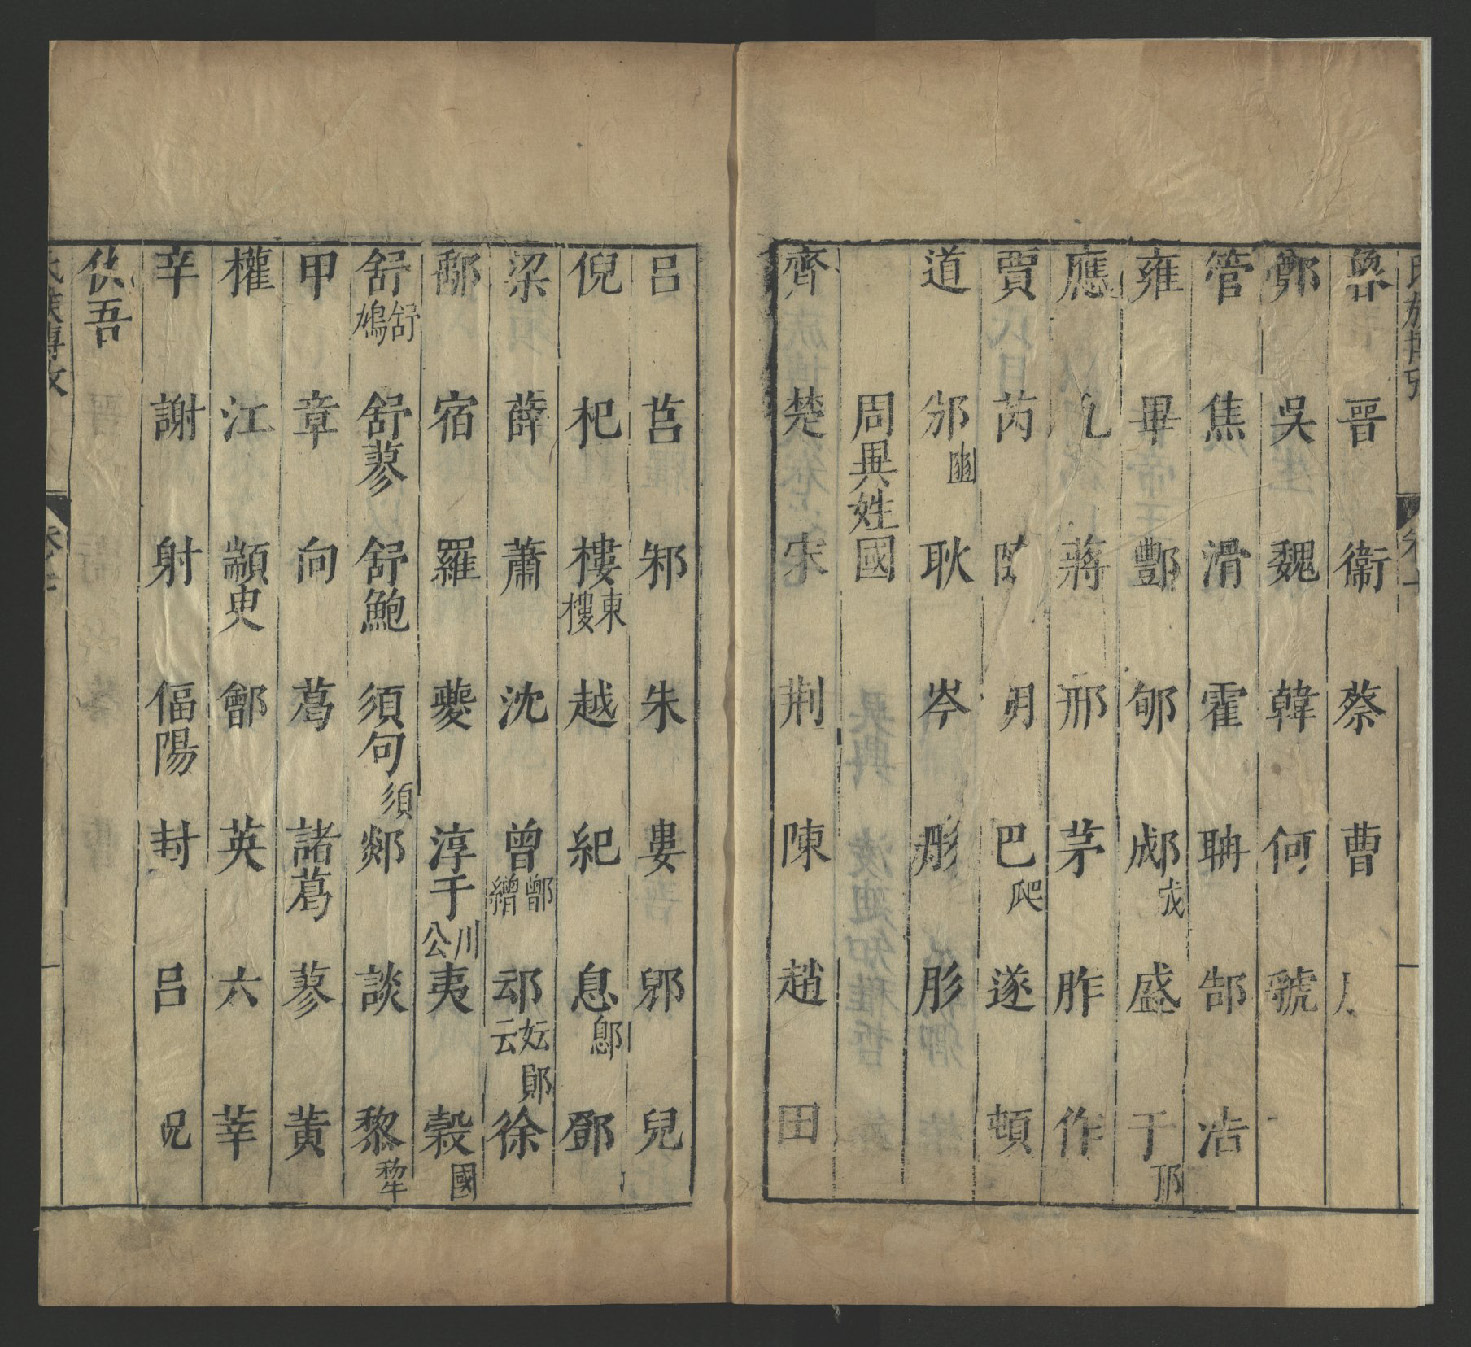 魯 晉 衞 蔡 曹
鄭 吳 魏 韓 何 虢
管 焦 滑 霍 聃 郜 浩
雍 畢 酆 郇 郕 戍 盛 于 邘
應 凡 蔣 邢 茅 胙 作
賈 芮 巴 爬 遂 頓
道 邠 豳 耿 岑 彤 肜
周異姓國
齊 楚 宋 荆 陳 趙 田
呂 莒 邾 朱 婁 郳 兒
倪 杞 樓 東樓 越 紀 息 鄎 鄧
梁 薛 蕭 沈 曾 鄫繒 邧 妘云鄖 徐
鄅 宿 羅 夔 淳于 川公 夷 穀 國
舒 舒鳩 舒蓼 舒鮑 須句 須 郯 談 黎 犂
甲 章 向 葛 諸葛 蓼 黃
權 江 顓臾 鄶 英 六 莘
辛 謝 射 偪陽 封 呂 呪
佽吾